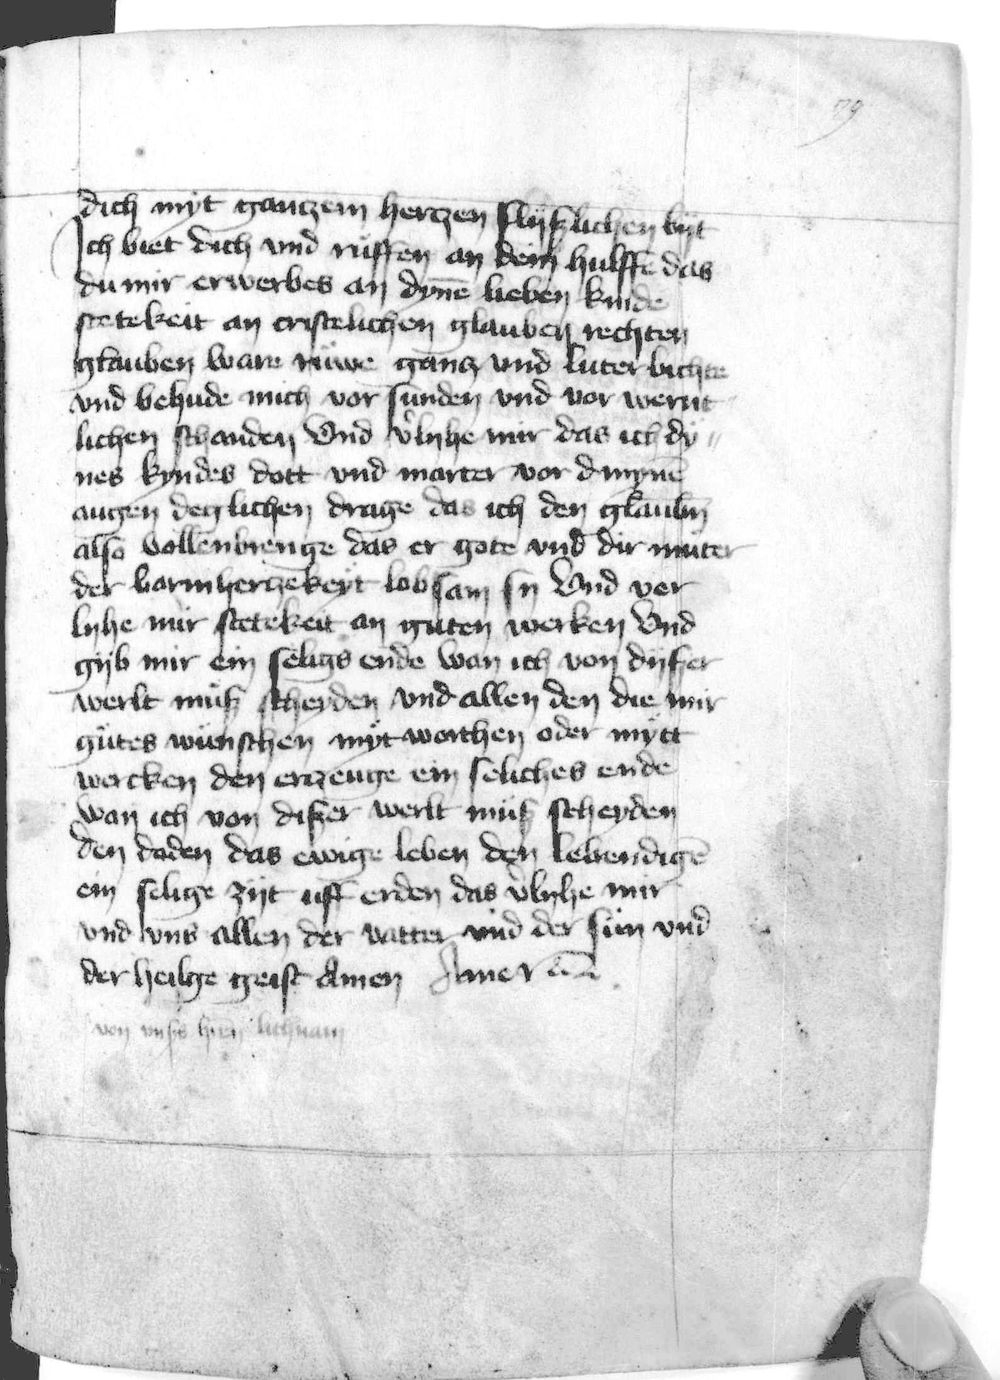 79
dich myt gantzem hertzen flyßlichen byt
Ich biet dich vnd rüffen an dein hulffe das
du mir erwerbes an dynē lieben kinde
stetekeit an cristelichen glauben rechten
glauben ware rüwe gantz vnd luter bichte
vnd behude mich vor sunden vnd vor wernt
lichen schanden Vnd v̉lyhe mir das ich dy
nes kyndes dott vnd marter vor dmynē
augen deglichen drage das ich den glaubin
also vollenbrenge das er gote vnd dir muter
der barmhertzekeyt lobsam sy Vnd ver
lyhe mir stetekeit an guten werken Vnd
gyb mir ein seligs ende wan ich von dyßer
werlt müß scheyden vnd allen den die mir
gütes wünschen myt worthen oder mytt
wercken den ertzeuge ein seliches ende
wan ich von dißer werlt müß scheyden
den doden das ewige leben den lebendigē
ein selige zijt uff erden das v̉lyhe mir
vnd vns allen der vatter vnd der sün vnd
der heilge geist Amen Ame
von vnsẜs hrēn lichnam